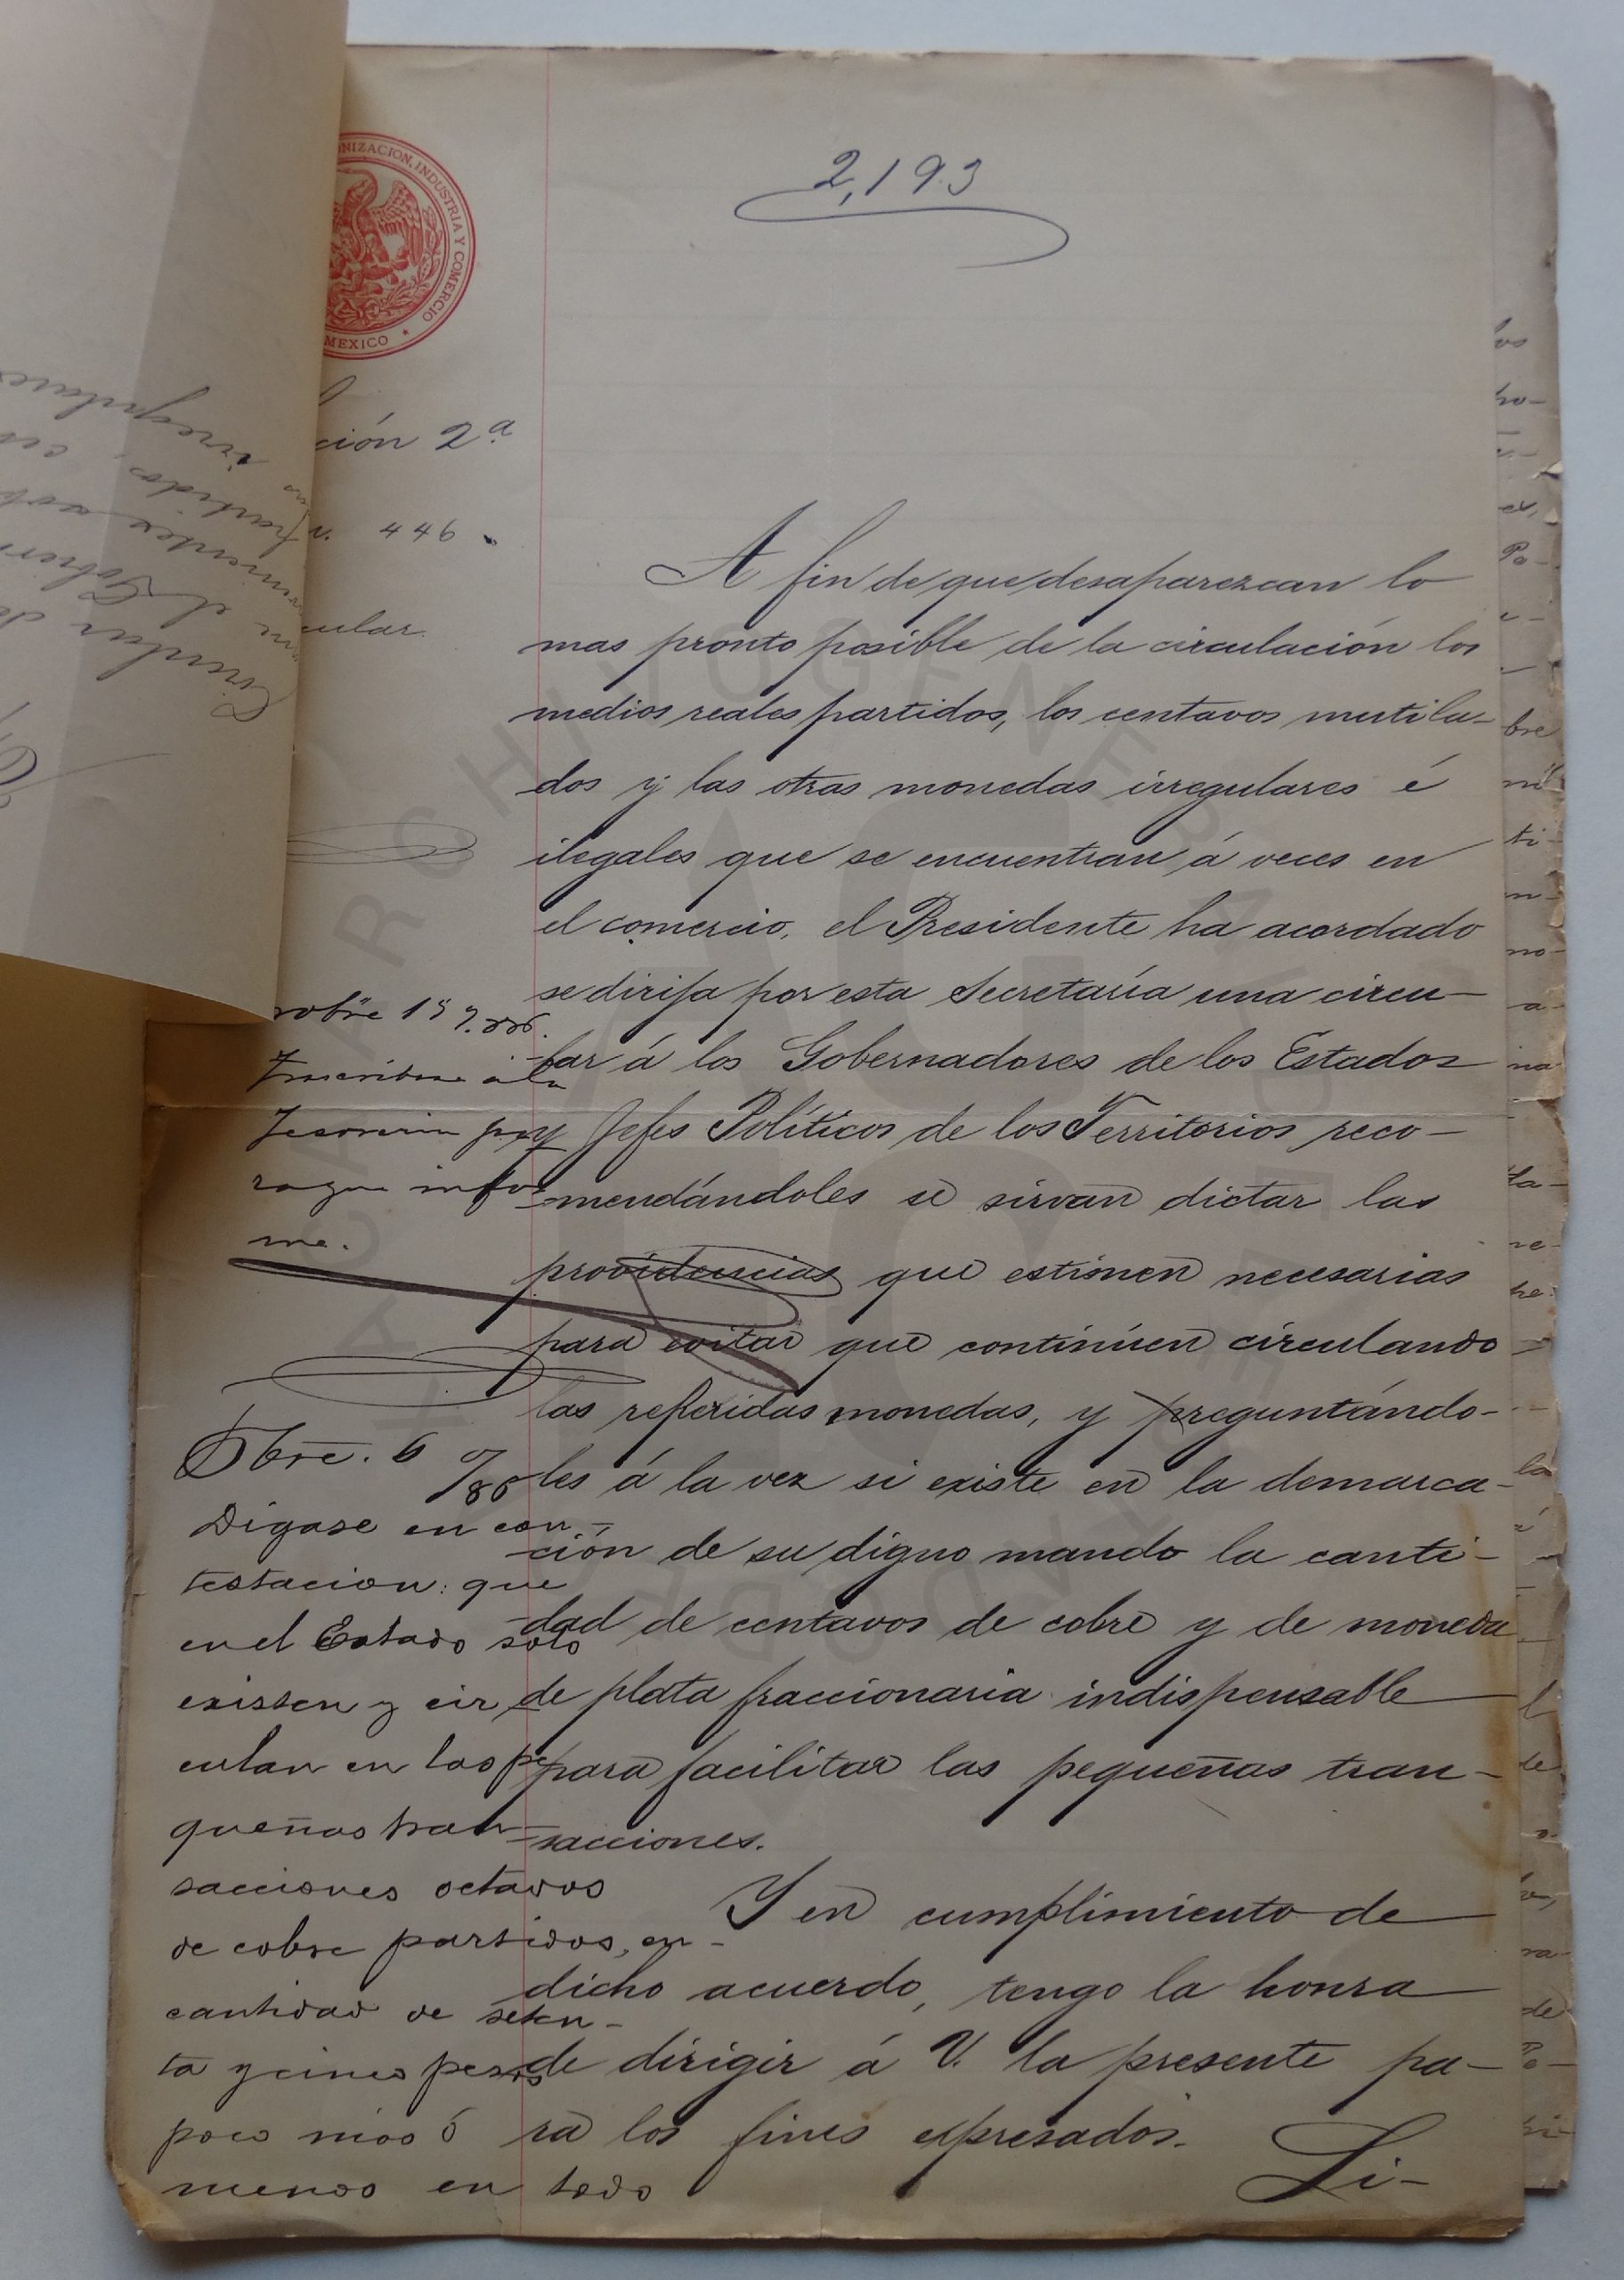 2,193
ONIZACION, INDUSTRIA Y COMERCIO
MEXICO
ción 2ª
446
cular.
A fin de que desaparezcan lo
mas pronto posible de la circulación los
medios reales partidos, los centavos mutila-
dos y las otras monedas irregulares é
ilegales que se encuentran á veces en
el comercio, el Presidente ha acordado
se dirija por esta Secretaría una circu-
lar á los Gobernadores de los Estados
y Jefes Políticos de los Territorios reco-
mendándoles se sirvan dictar las
providencias que estimen necesarias
para evitar que continúen circulando
las referidas monedas, y preguntándo-
les á la vez si existe en la demarca-
ción de su digno mando la canti-
dad de centavos de cobre y de moneda
de plata fraccionaria indispensable
para facilitar las pequeñas tran-
sacciones.
Y en cumplimiento de
dicho acuerdo, tengo la honra
de dirigir á V. la presente pa-
ra los fines expresados.
Li-
Trascribase á la
Tesorería pa
ra que infor
me.
Dbre. 6 /86
Digase en con-
testacion: que
en el Estado solo
existen y cir
culan en las pe
queñas tran-
sacciones octavos
de cobre partidos, en
cantidad de seten-
ta y cinco pesos
poco mas ó
menos en todo